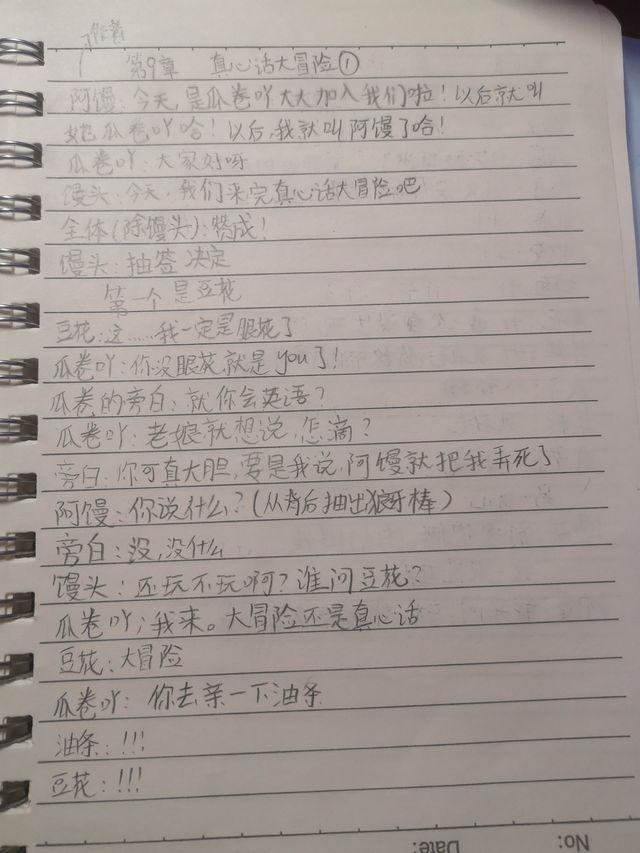 作者
第9章 真心话大冒险①
阿馒：今天，是瓜卷吖大大加入我们啦！以后就叫
她瓜卷吖哈！以后，我就叫阿馒了哈！
瓜卷吖：大家好呀
馒头：今天，我们来完真心话大冒险吧
全体(除馒头)：赞成！
馒头：抽签决定
第一个是豆花
豆花：这……我一定是眼花了
瓜卷吖：你没眼花，就是you了！
瓜卷的旁白：就你会英语？
瓜卷吖：老娘就想说，怎滴？
旁白：你可真大胆，要是我说，阿馒就把我弄死了
阿馒：你说什么？(从背后抽出狼牙棒)
旁白：没，没什么
馒头：还玩不玩啊？谁问豆花？
瓜卷吖；我来。大冒险还是真心话
豆花：大冒险
瓜卷吖：你去亲一下油条
油条：!!!
豆花：!!!
No:
Date: